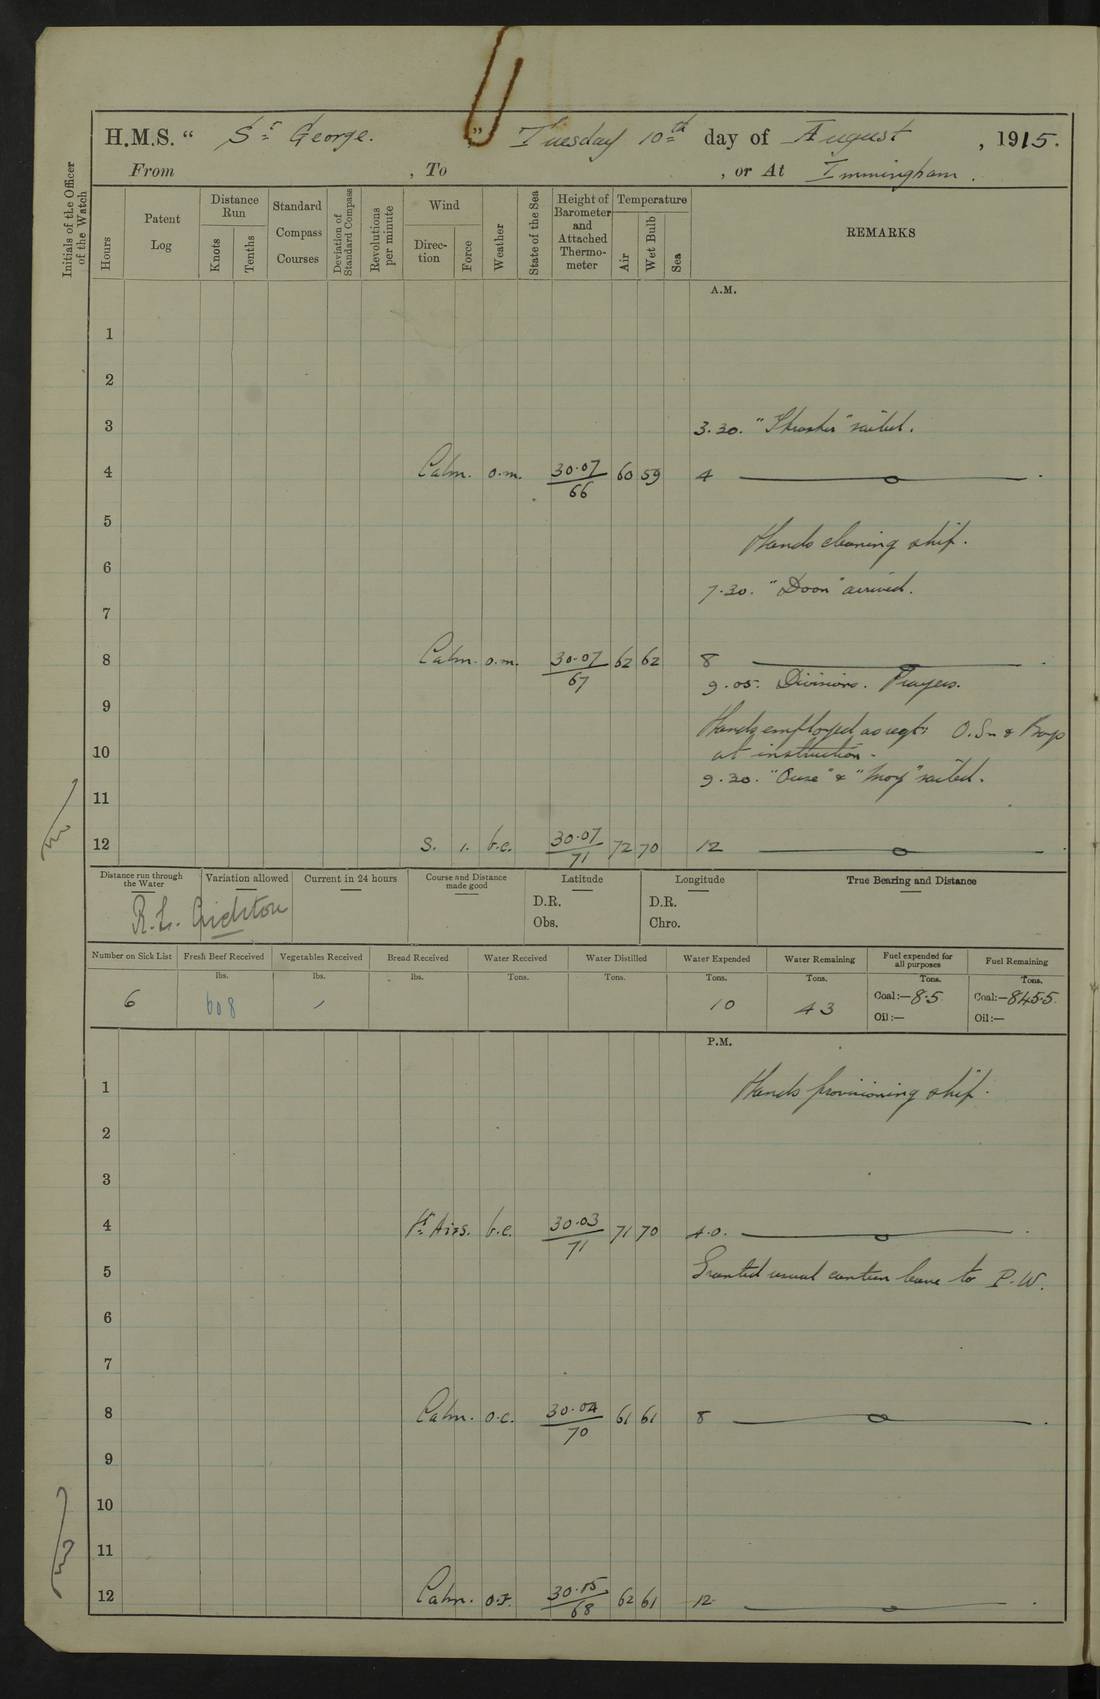 H.M.S. “ St George. ,” Tuesday 10th day of August , 1915.
From , To , or At Immingham.
Initials of the Officer of the Watch
Hours
Patent Log
Distance Run
Knots
Tenths
Standard Compass Courses
Deviation of Standard Compass
Revolutions per minute
Wind
Direc-tion
Force
Weather
State of the Sea
Height of Barometer and Attached Thermo-meter
Temperature
Air
Wet Bulb
Sea
REMARKS
A.M.
1
2
3 3.30. "Thrasher" sailed.
4 Calm. o.m. 30.07/66 60 59 4
5 Hands cleaning ship.
6
7.30. "Doon" arrived.
7
8 Calm. o.m. 30.07/67 62 62 8
9.05. Divisions. Prayers.
9
Hands employed as reqt: O.Sn & Boys
10 at instruction.
9.30. "Ouse" & "Moy" sailed.
11
12 S. 1. b.c. 30.07/71 72 70 12
Distance run through the Water
Variation allowed
Current in 24 hours
Course and Distance made good
Latitude
Longitude
True Bearing and Distance
R.L. Crichton
D.R. D.R.
Obs. Chro.
Number on Sick List
Fresh Beef Received
Vegetables Received
Bread Received
Water Received
Water Distilled
Water Expended
Water Remaining
Fuel expended for all purposes
Fuel Remaining
lbs. lbs. lbs. Tons. Tons. Tons. Tons. Tons. Tons.
6 608 / 10 43 Coal:—8.5 Coal:—845.5.
Oil:— Oil:—
P.M.
1 Hands provisioning ship.
2
3
4 Lt Airs. b.c. 30.03/71 71 70 4.0.
5 Granted usual canteen leave to P.W.
6
7
8 Calm. o.c. 30.04/70 61 61 8
9
10
11
12 Calm. o.f. 30.15/68 62 61 12